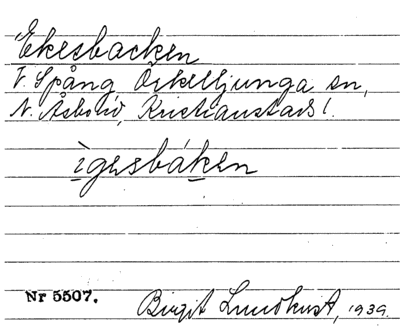 Ekesbacken
V. Spång, Örkelljunga sn,
N. Åsbo hd, Kristianstads l.
ìgesbáken
Nr 5507. Birgit Lundkvist, 1939.